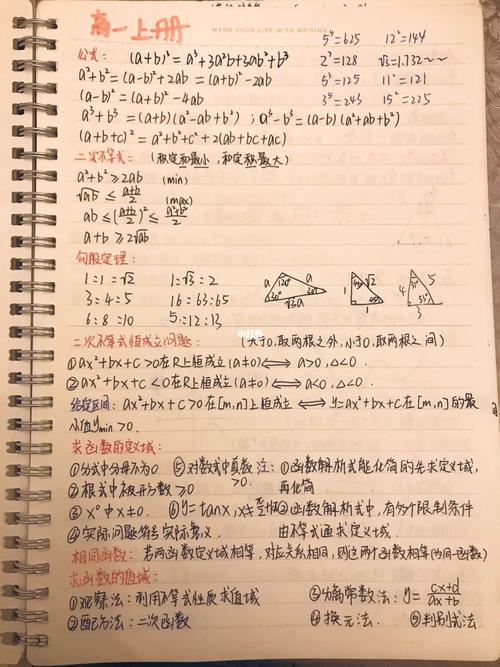 高一上册
WARM YOUR LIFE WITH WRITING
公式: (a+b)³ = a³+3a²b+3ab²+b³
5⁴=625 12²=144
a²+b² = (a-b)²+2ab = (a+b)²-2ab
2⁷=128 √3=1.732~~
(a-b)² = (a+b)²-4ab
5³=125 11²=121
3⁵=243 15²=225
a³+b³ = (a+b)(a²-ab+b²) ; a³-b³=(a-b)(a²+ab+b²)
(a+b+c)² = a²+b²+c²+2(ab+bc+ac)
二次不等式: (积定和最小, 和定积最大)
a²+b² ≥ 2ab (min)
√ab ≤ (a+b)/2 (max)
ab ≤ ((a+b)/2)² ≤ (a²+b²)/2
a+b ≥ 2√ab
勾股定理:
1:1:√2 1:√3:2
3:4:5 16:63:65
6:8:10 5:12:13
a 120° a 30° 30° √3a
1 √2 45° 1
4 5 53° 3
小红书
二次不等式恒成立问题: (大于0,取两根之外,小于0,取两根之间)
①ax²+bx+c>0在R上恒成立(a≠0)⟺a>0,△<0.
②ax²+bx+c<0在R上恒成立(a≠0)⟺a<0,△<0.
给定区间: ax²+bx+c>0在[m,n]上恒成立⟺y=ax²+bx+c在[m,n]的最
小值ymin>0.
求函数的定义域:
①分式中分母不为0 ⑤对数式中真数>0.
注: ①函数解析式能化简的先求定义域,
再化简
②根式中被开方数≥0
③x⁰中x≠0. ⑥y=tanx, x≠
②函数解析式中,有多个限制条件
④实际问题符合实际意义.
由不等式组求定义域.
相同函数: 若两函数定义域相等,对应关系相同,则这两个函数相等(同一函数)
求函数的值域:
①观察法:利用不等式性质求值域 ③分离常数法: y=(cx+d)/(ax+b)
②配方法:二次函数 ④换元法. ⑤判别式法